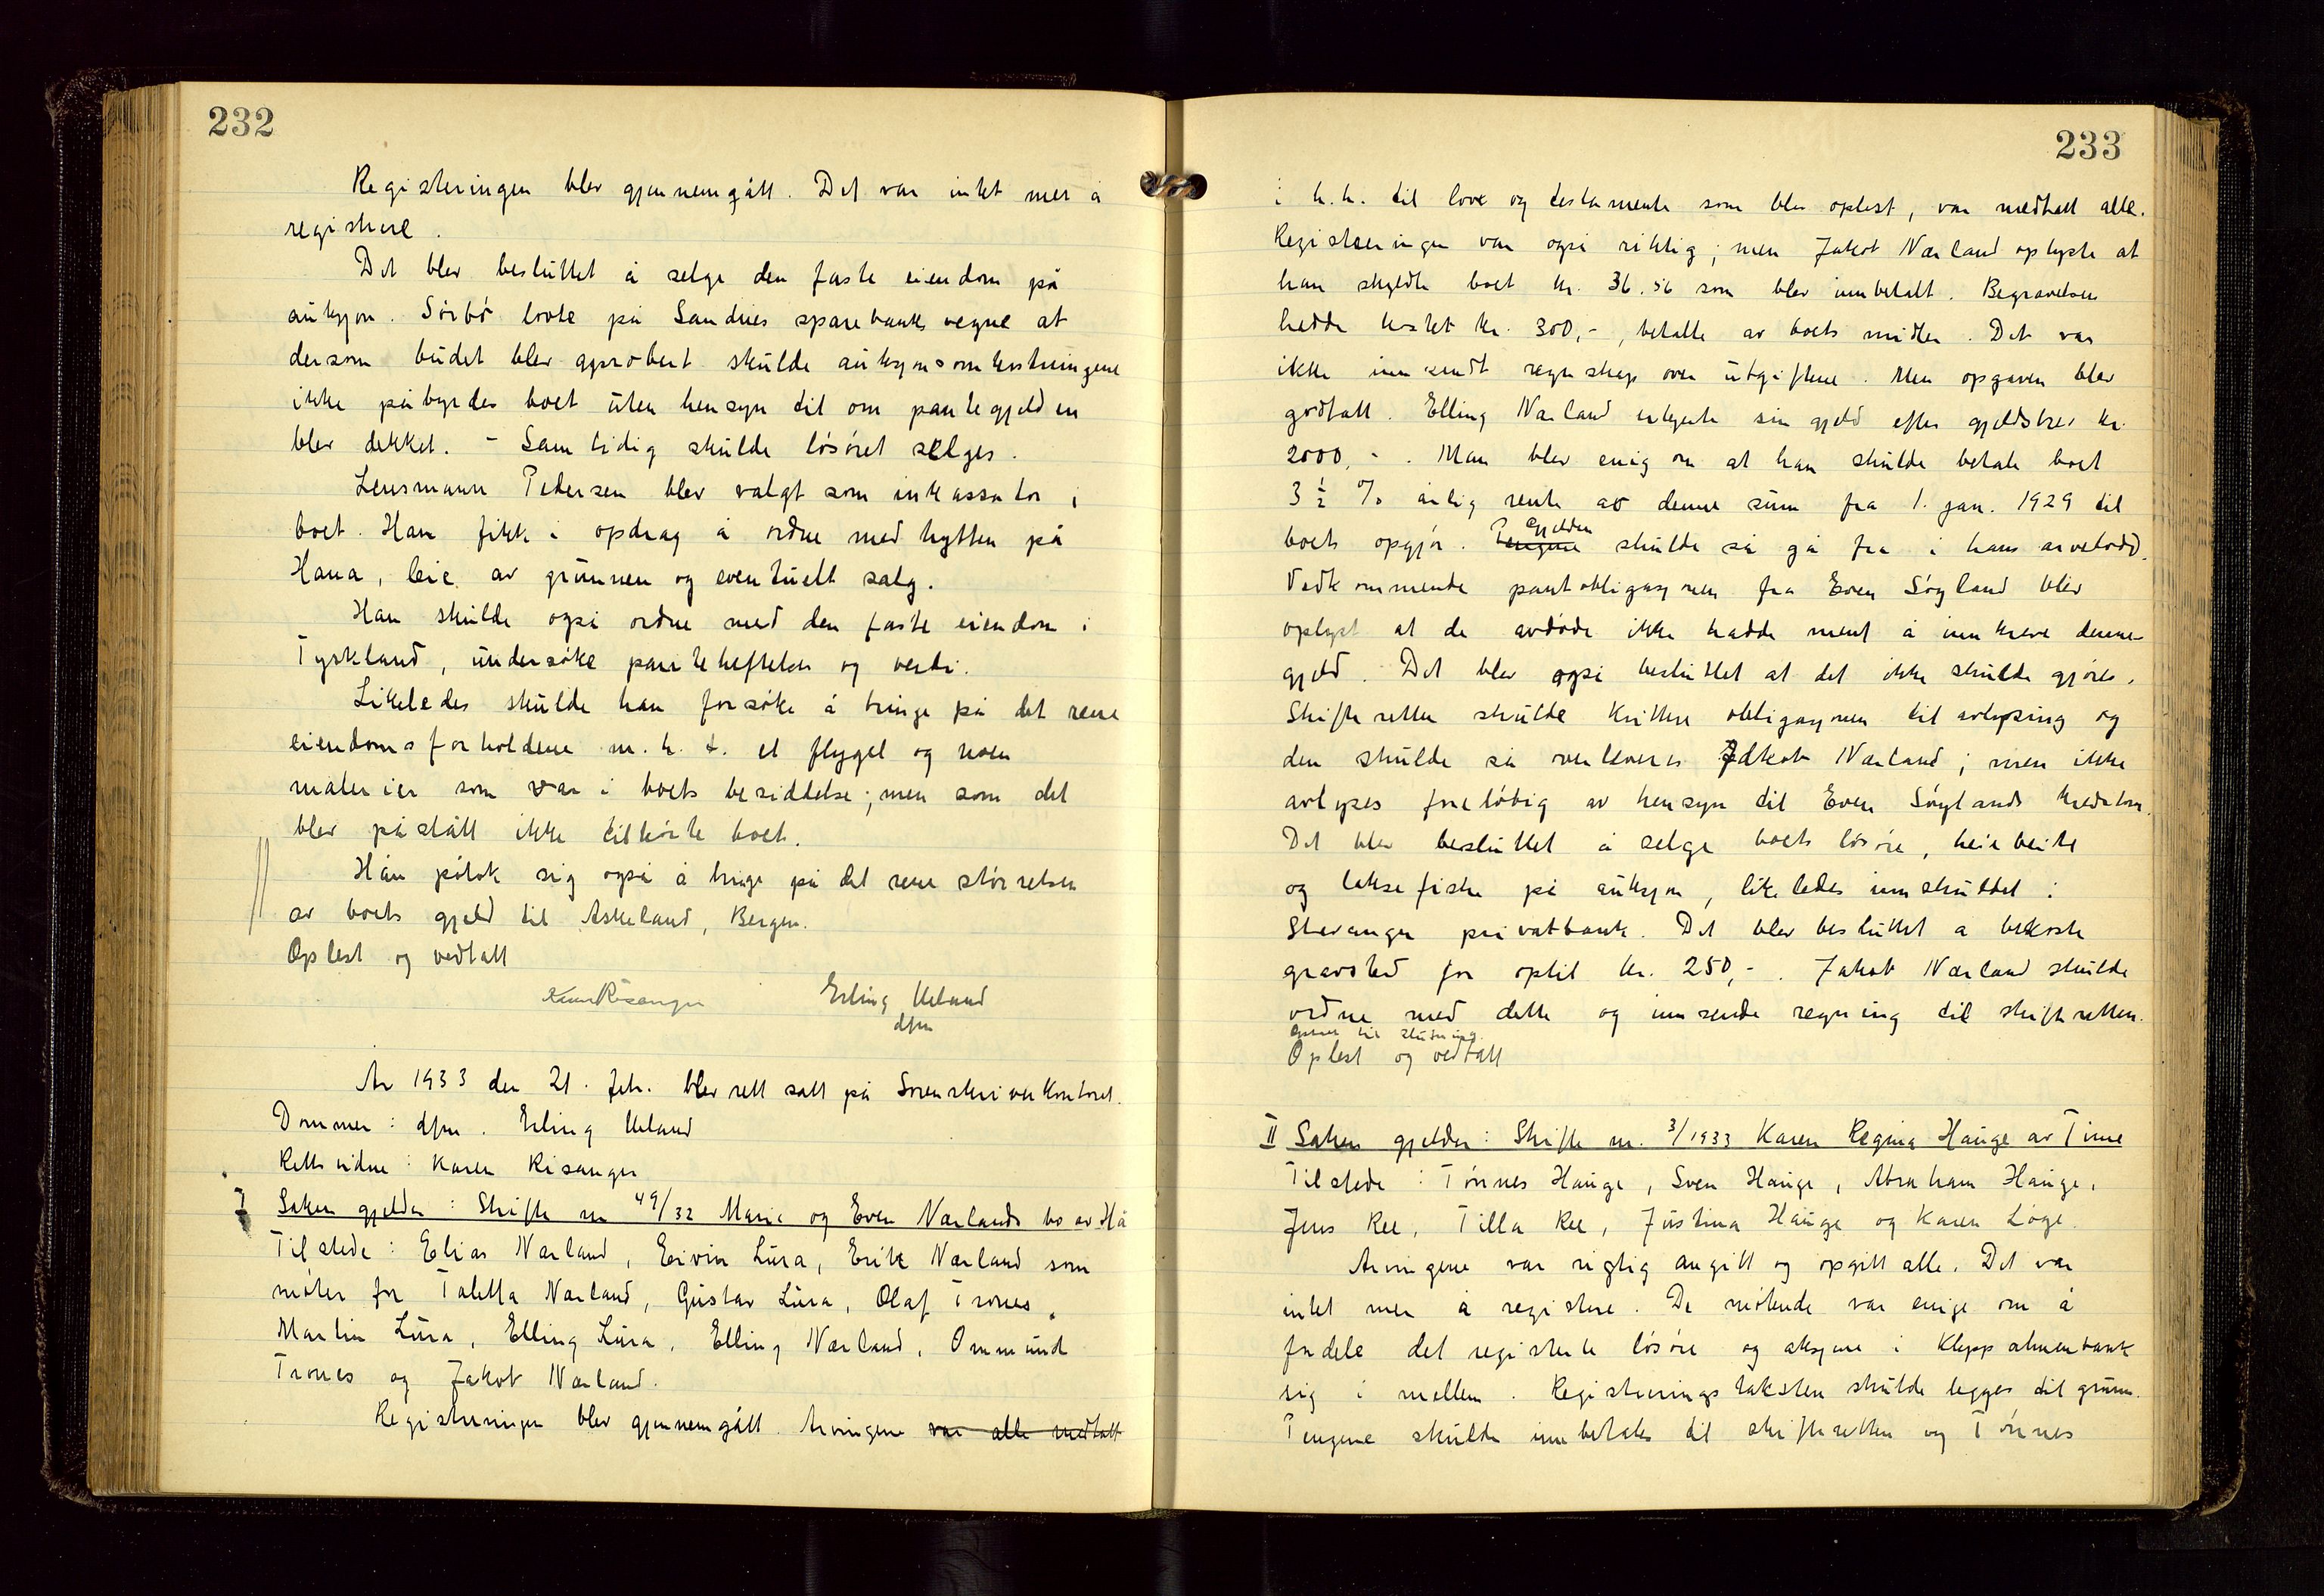 232
Registeringen blev gjennemgått. Det var intet mer å
registrere.
Det blev besluttet å selge den faste eiendom på
auksjon. Sørbø lovte på Sandnes sparebanks vegne at
dersom budet blev approbert skulde auksjonsomkostningene
ikke påbyrdes boet uten hensyn til om pantegjelden
blev dekket. - Samtidig skulde løsøret selges.
Lensmann Pedersen blev valgt som inkassator i
boet. Han fikk i opdrag å ordne med hytten på
Hana, leie av grunnen og eventuelt salg.
Han skulde også ordne med den faste eiendom i
Tyskland, undersøke panteheftelser og verdi.
Likeledes skulde han forsøke å bringe på det rene
eiendomsforholdene m. h. t. et flygel og noen
malerier som var i boets besiddelse; men som det
blev påstått ikke tilhørte boet.
Han påtok sig også å bringe på det rene størrelsen
av boets gjeld til Askeland, Bergen.
Oplest og vedtatt
Karen Risanger Erling Ueland
dfm
År 1933 den 21. feb. blev rett satt på Sorenskriverkontoret.
Dommer: dfm. Erling Ueland
Rettsvidne: Karen Risanger
I Saken gjelder: Skifte nr 49/32 Marie og Even Nærlands bo av Hå
Tilstede: Elias Nærland, Eivin Lura, Erik Nærland som
møter for Taletta Nærland, Gustav Lura, Olaf Trones,
Martin Lura, Elling Lura, Elling Nærland, Ommund
Trones og Jakob Nærland.
Registeringen blev gjennemgått. Arvingene var alle medtatt
233
i h.h. til love og testamente som blev oplest, var medtatt alle.
Registreringen var også riktig; men Jakob Nærland oplyste at
han skyldte boet kr. 36.56 som blev innbetalt. Begravelsen
hadde kostet kr. 300,-, betalte av boets midler. Det var
ikke innsendt regnskap over utgiftene. Men opgaven blev
godtatt. Elling Nærland erkjente sin gjeld efter gjeldsbrev kr.
2000,-. Man blev enig om at han skulde betale boet
3 1/2 % årlig rente av denne sum fra 1. jan. 1929 til
gjelden
boets opgjør. Pengene skulde så gå fra i hans arvelodd.
Vedkommende pantobligasjonen fra Even Søyland blev
oplyst at de avdøde ikke hadde ment å innkreve denne
gjeld. Det blev også besluttet at det ikke skulde gjøres.
Skifteretten skulde kvittere obligasjonen til avlysing og
den skulde så overleveres Jakob Nærland; men ikke
avlyses foreløbig av hensyn til Even Søylands kreditorer.
Det blev besluttet å selge boets løsøre, heiebeite
og laksefiske på auksjon, likeledes innskuddet i
Stavanger privatbank. Det blev besluttet å bekoste
gravsted for optil kr. 250,-. Jakob Nærland skulde
ordne med dette og innsende regning til skifteretten.
til slutning.
Oplest og vedtatt
II Saken gjelder: Skifte nr. 3/1933 Karen Regina Hauge av Time
Tilstede: Tønnes Hauge, Sven Hauge, Abraham Hauge,
Jens Ree, Tilla Ree, Justina Hauge og Karen Loge.
Arvingene var rigtig angitt og opgitt alle. Det var
intet mer å registere. De møtende var enige om å
fordele det registerte løsøre og aksjene i Klepp almenbank
sig i mellem. Registreringstaksten skulde legges til grunn.
Pengene skulde innbetales til skifteretten og Tønnes